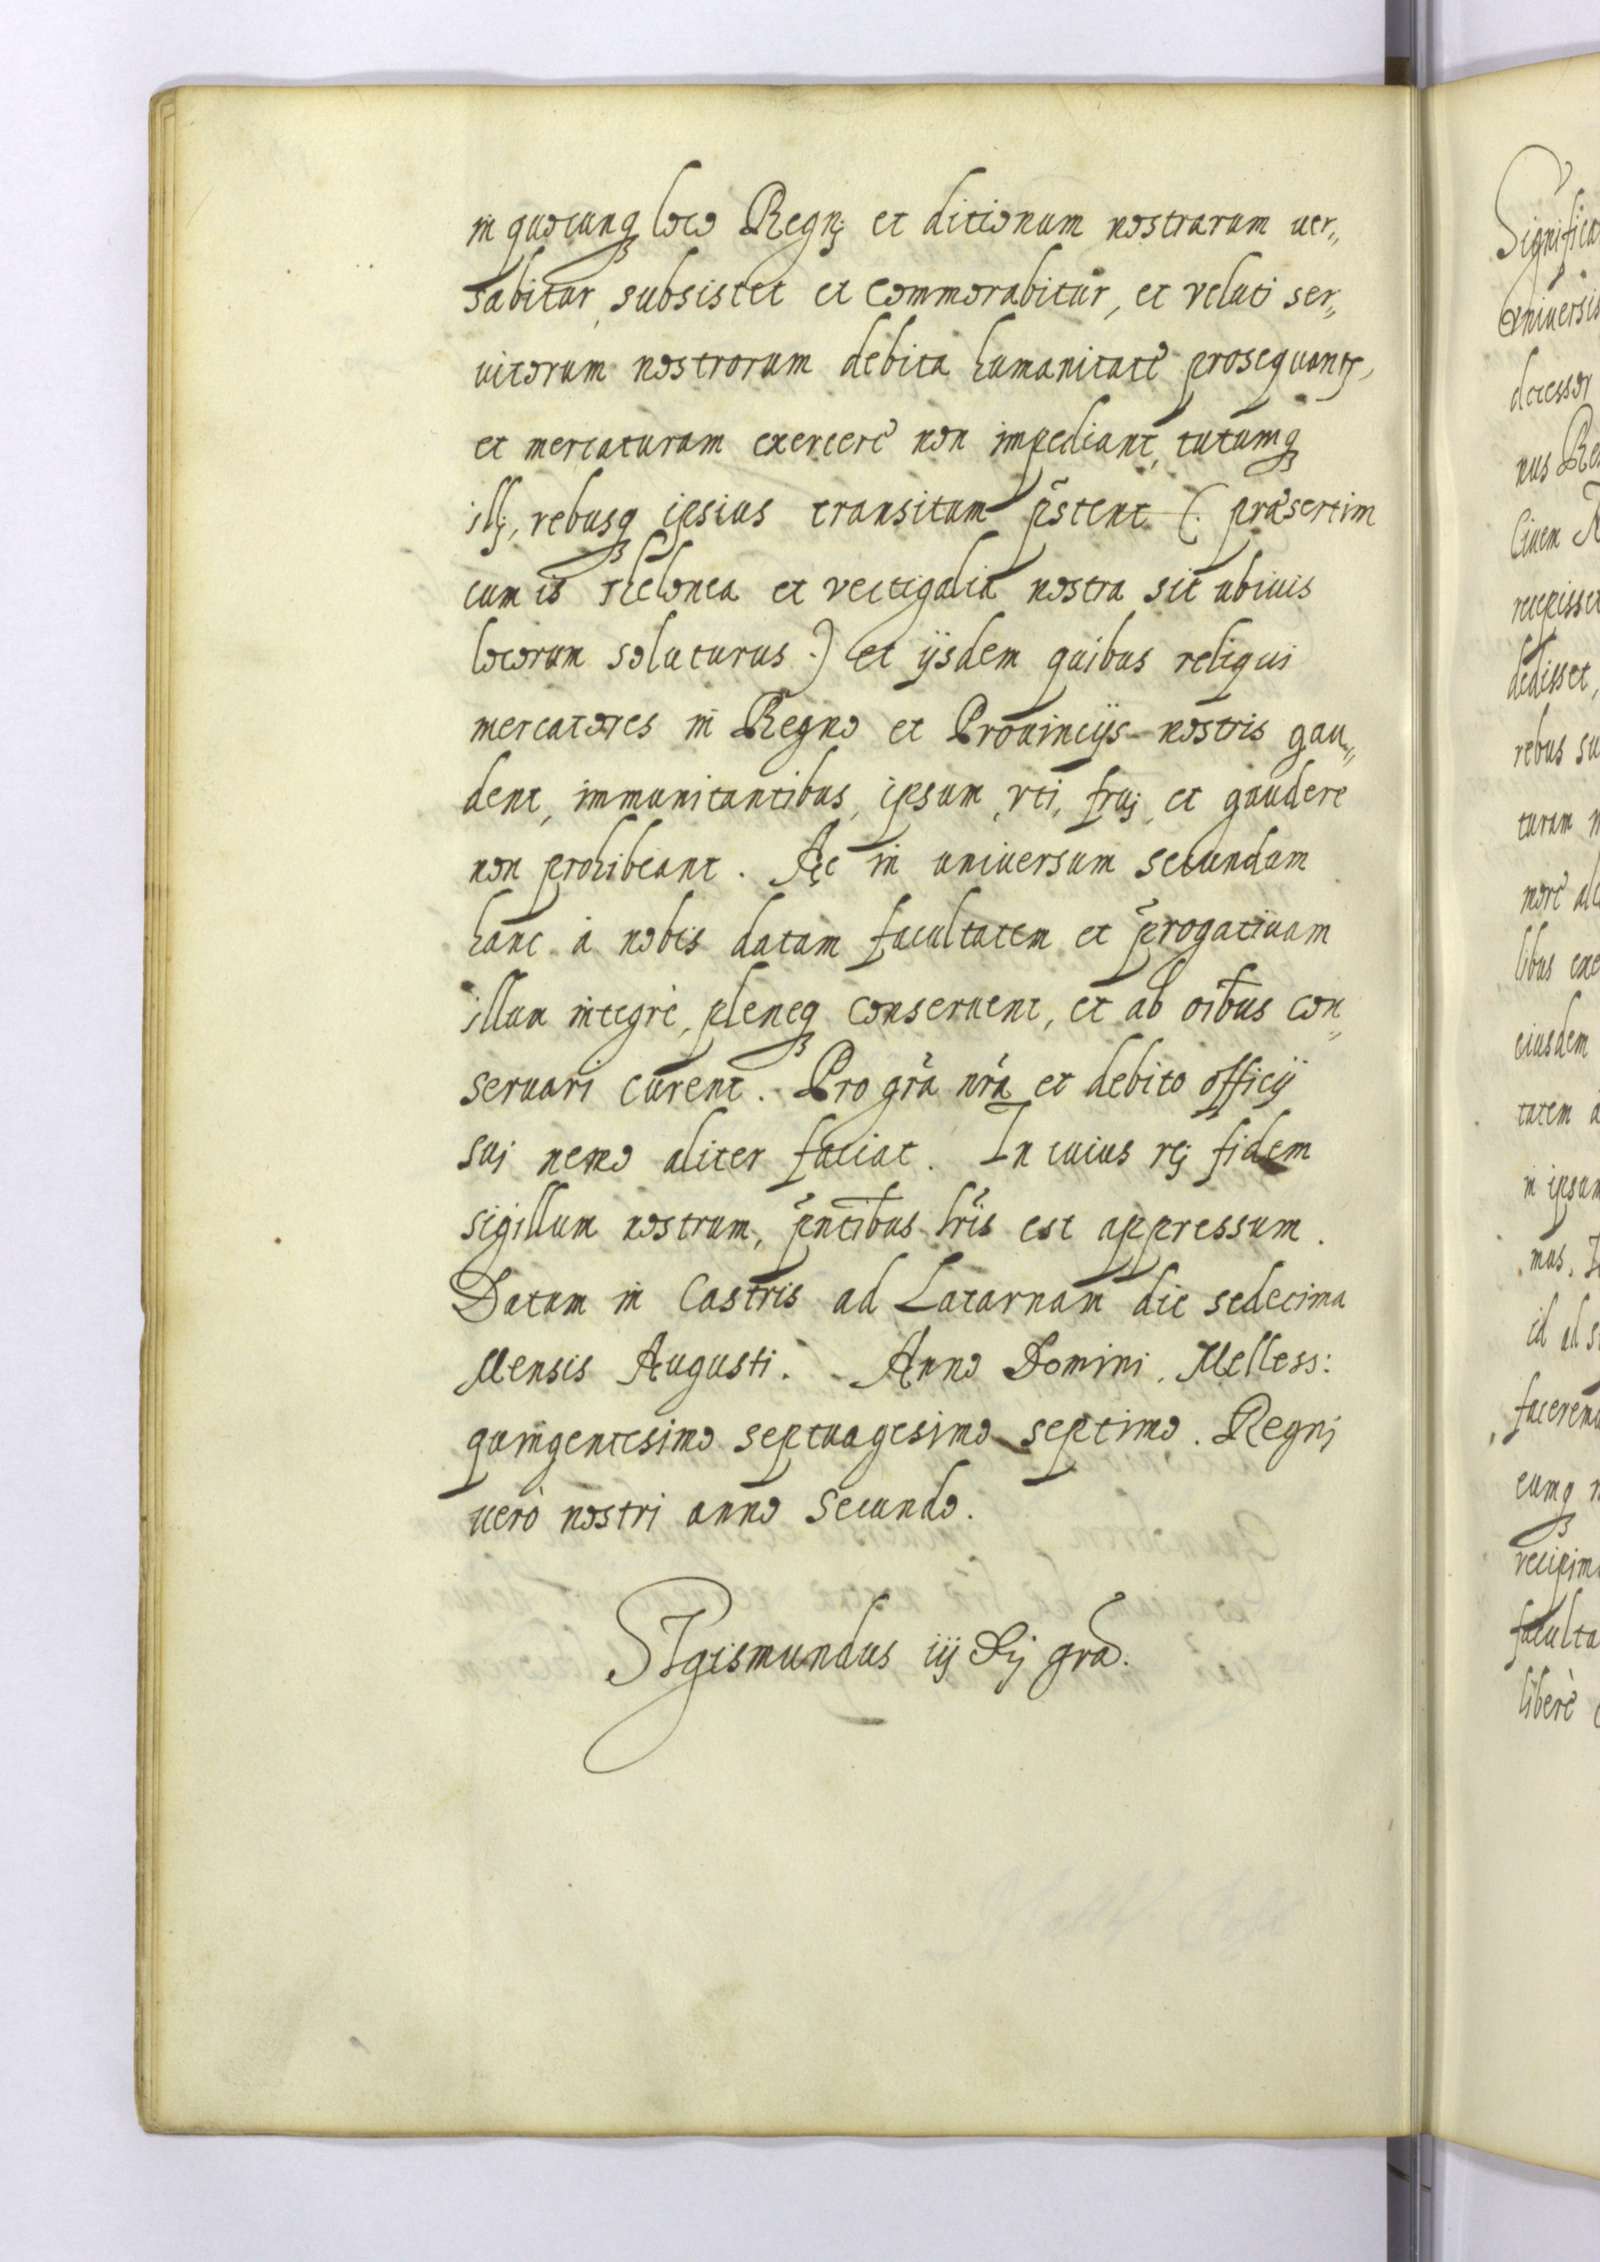 in quocunq loco Regnj et ditionum nostrarum uer„
sabitur, subsistet et commorabitur, et veluti ser„
uitorum nostrorum debita humanitate prosequantr,
et mercaturam exercere non impediant, tutumq
illj, rebusq ipsius transitum p̃stent (. præsertim
cum is thelonea et vectigalia nostra sit ubiuis
locorum soluturus .) et ijsdem quibus reliqui
mercatores in Regno et Prouincijs nostris gau„
dent, immunitantibus, ipsum, vti, fruj, et gaudere
non prohibeant. Ac in uniuersum secundum
hanc à nobis datam facultatem et p̃rogatiuam
illum integrè, pleneq conseruent, et ab oĩbus con„
seruari curent. Pro gr̃a nr̃a et debito officij
suj nemo aliter faciat. In cuius rej fidem
sigillum nostrum, p̃ntibus lr̃is est appressum.
Datum in Castris ad Latarnam die sedecima
Mensis Augusti. Anno Domini, Melless:
quingentesimo septuagesimo septimo. Regnj
uerò nostri anno secundo.
SIgismundus iij Dej gra.
Significa
Vniuersis
decessor
nus Re
Ciuem
recepisset
dedisset,
rebus su
turam n
more al
libus exe
eiusdem
tatem a
in ipsum
mus. I
id ad s
facerem
eumq n
recipim
faculta
liberè